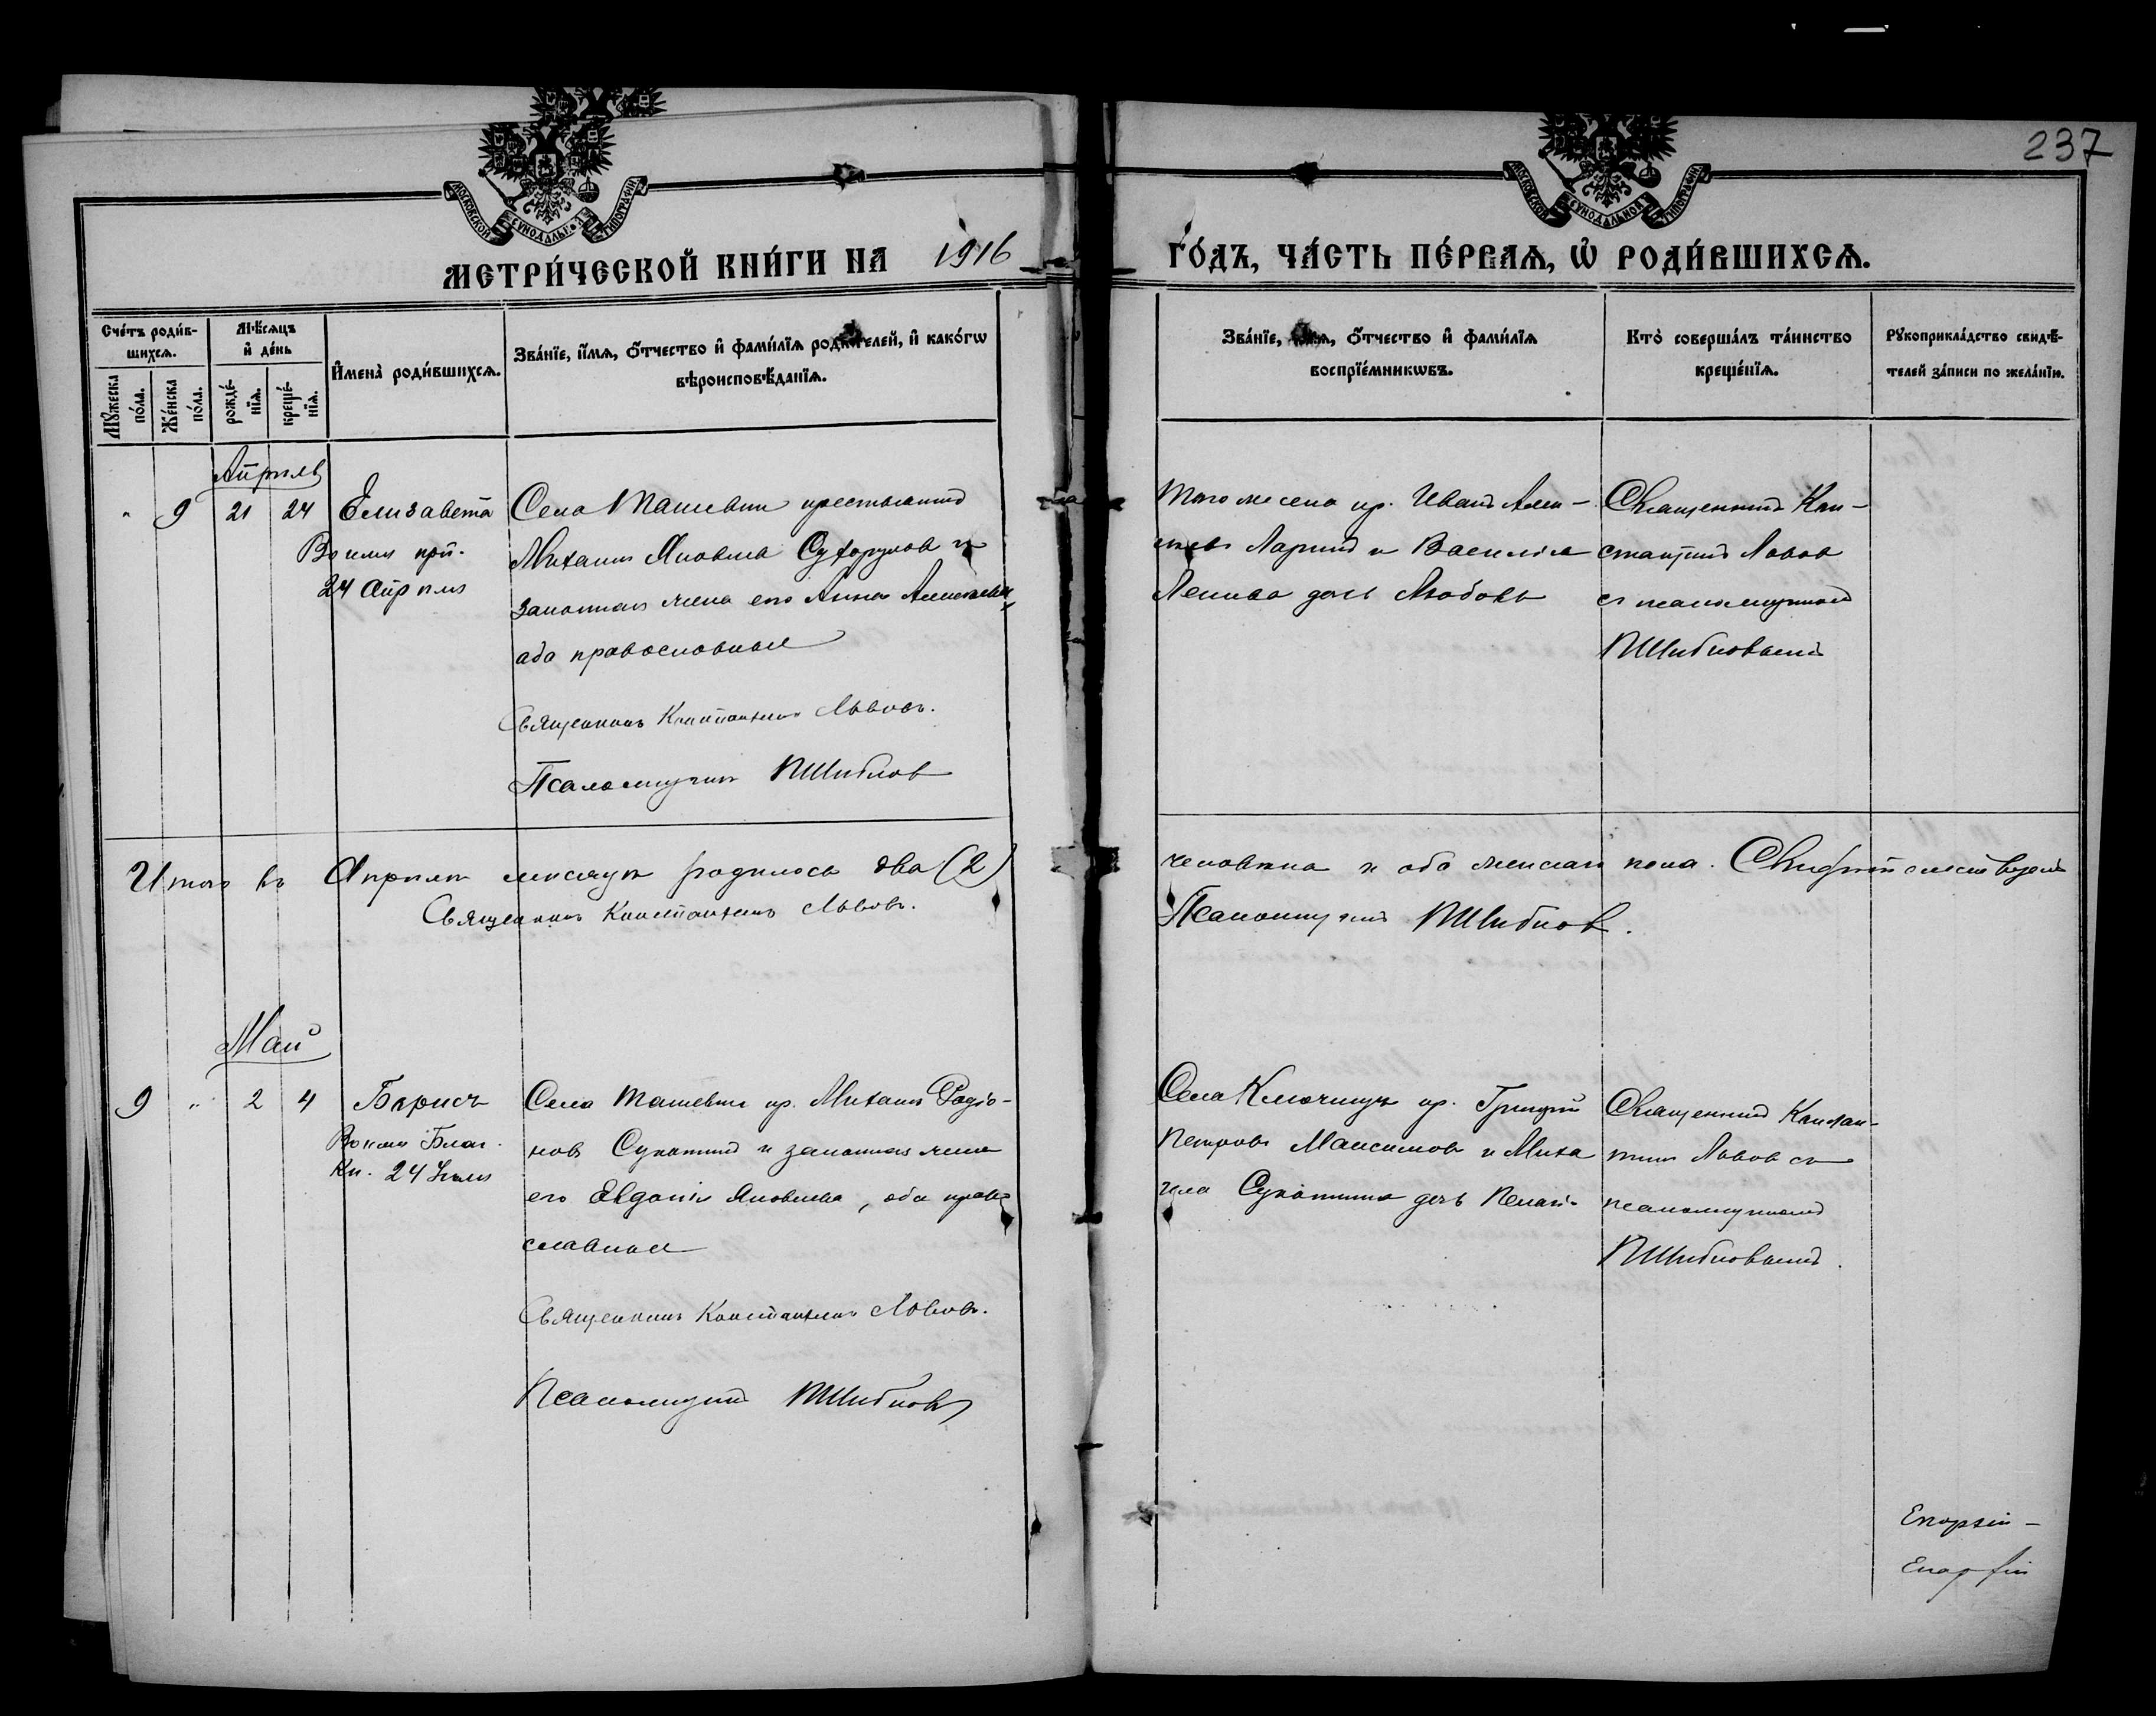 237
МОСКОВСКОЙ СУНОДАЛЬНОЙ ТИПОГРАФІИ
МОСКОВСКОЙ СУНОДАЛЬНОЙ ТИПОГРАФІИ
МЕТРИ́ЧЕСКОЙ КНИ́ГИ НА 1916 ГО́ДЪ, ЧА́СТЬ ПЕ́РВАѦ, Ѡ҆ РОДИ́ВШИХСѦ.
Сче́тъ роди́в-
шихсѧ.
Мꙋ́жеска по́ла.
Же́нска по́ла.
Мѣ́сѧцъ и҆ де́нь
рожде́-
нїѧ.
креще́-
нїѧ.
И҆мена̀ роди́вшихсѧ.
Зва́нїе, и҆́мѧ, ѻ҆́тчество и҆ фами́лїѧ роди́телей, и҆ како́гѡ
вѣроисповѣ́данїѧ.
Зва́нїе, и҆́мѧ, ѻ҆́тчество и҆ фами́лїѧ
воспрїе́мникѡвъ.
Кто̀ соверша́лъ та́инство
креще́нїѧ.
Рꙋкоприкла́дство свидѣ́-
телей за́писи по жела́нїю.
Апрѣль
" 9 21 24 Елизавета
Во имя прп.
24 Апрѣля
Села Ташевки крестьянинъ
Михаилъ Яковлевъ и
законная жена его Анна Алексѣева
оба православные
Священникъ Константинъ Львовъ.
Псаломщикъ ПШибловъ
Того же села кр. Иванъ Алек-
Ларинъ и Василія
дочь Любовь
Священникъ Кон-
стантинъ Львовъ
съ псаломщикомъ
ПШибловымъ
Итого въ Апрѣлѣ мѣсяцѣ родилось два (2) человѣка и оба женскаго пола. Свидѣтельствуемъ
Священникъ Константинъ Львовъ.
Псаломщикъ ПШибловъ.
Май
9 " 2 4 Борисъ
Во имя Благ.
Кн. 24 Іюля
Села Ташевки кр. Михаилъ Родіо-
новъ Сукотинъ и законная жена
его Евдокія Яковлева, оба право-
славные
Священникъ Константинъ Львовъ.
Псаломщикъ ПШибловъ
Села Ключищъ кр. Григорій
Петровъ Максимовъ и Миха
ила Сукотина дочь Пелагі-
Священникъ Констан-
тинъ Львовъ съ
псаломщикомъ
ПШибловымъ.